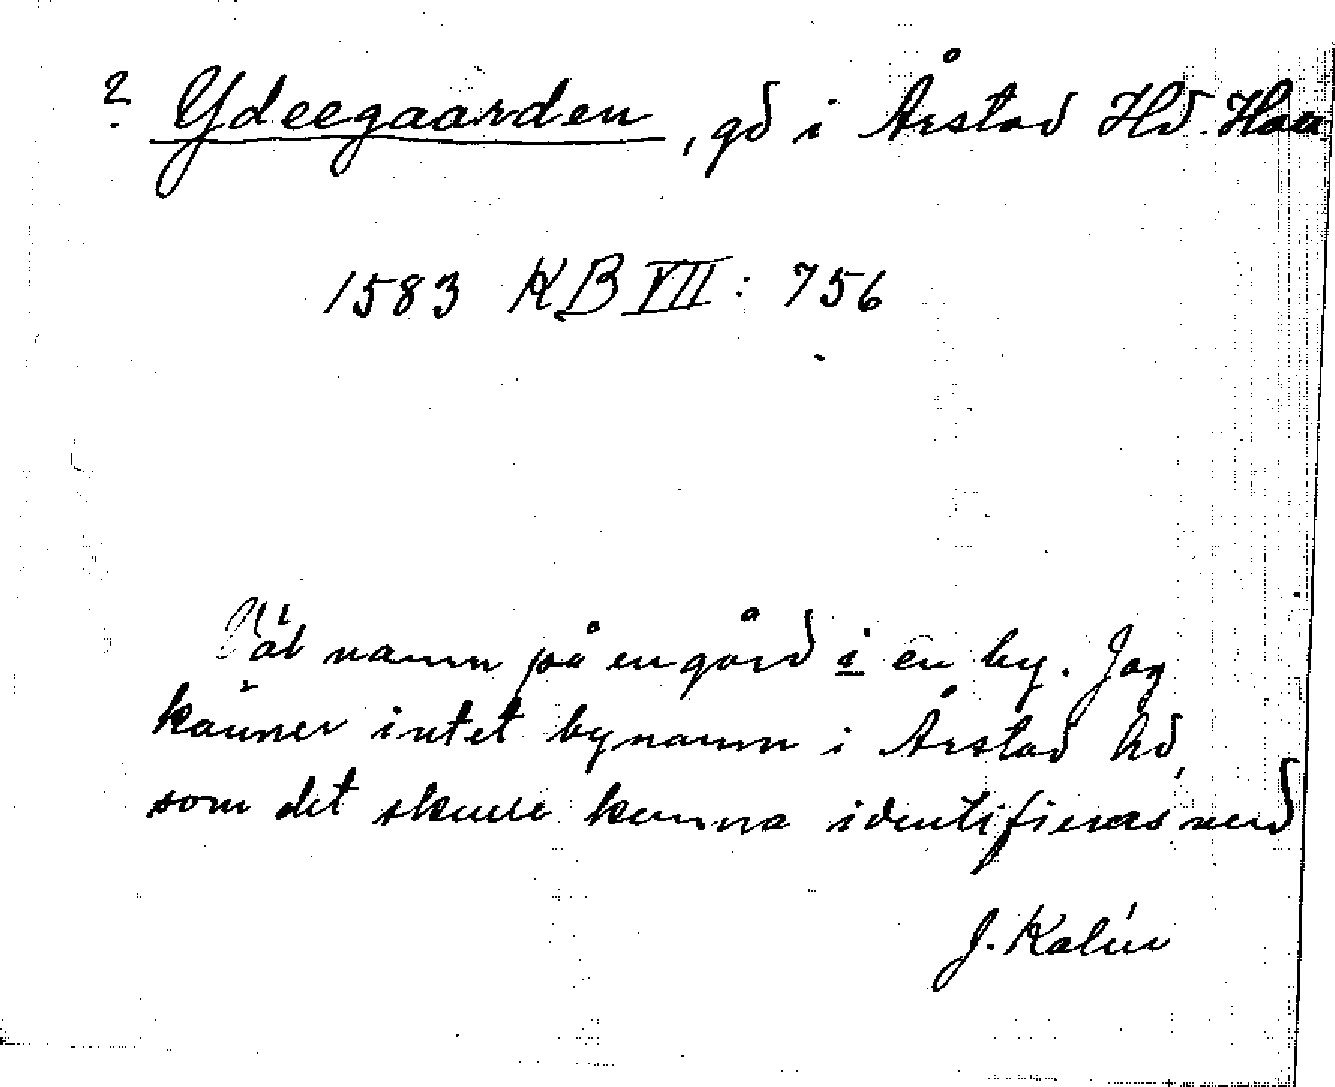 ? Ydeegaarden, gd i Årstad Hd. Hall
1583 KB VII: 756
Väl namn på en gård i en by. Jag
känner intet bynamn i Årstad hd,
som det skulle kunna identifieras med
J. Kalén